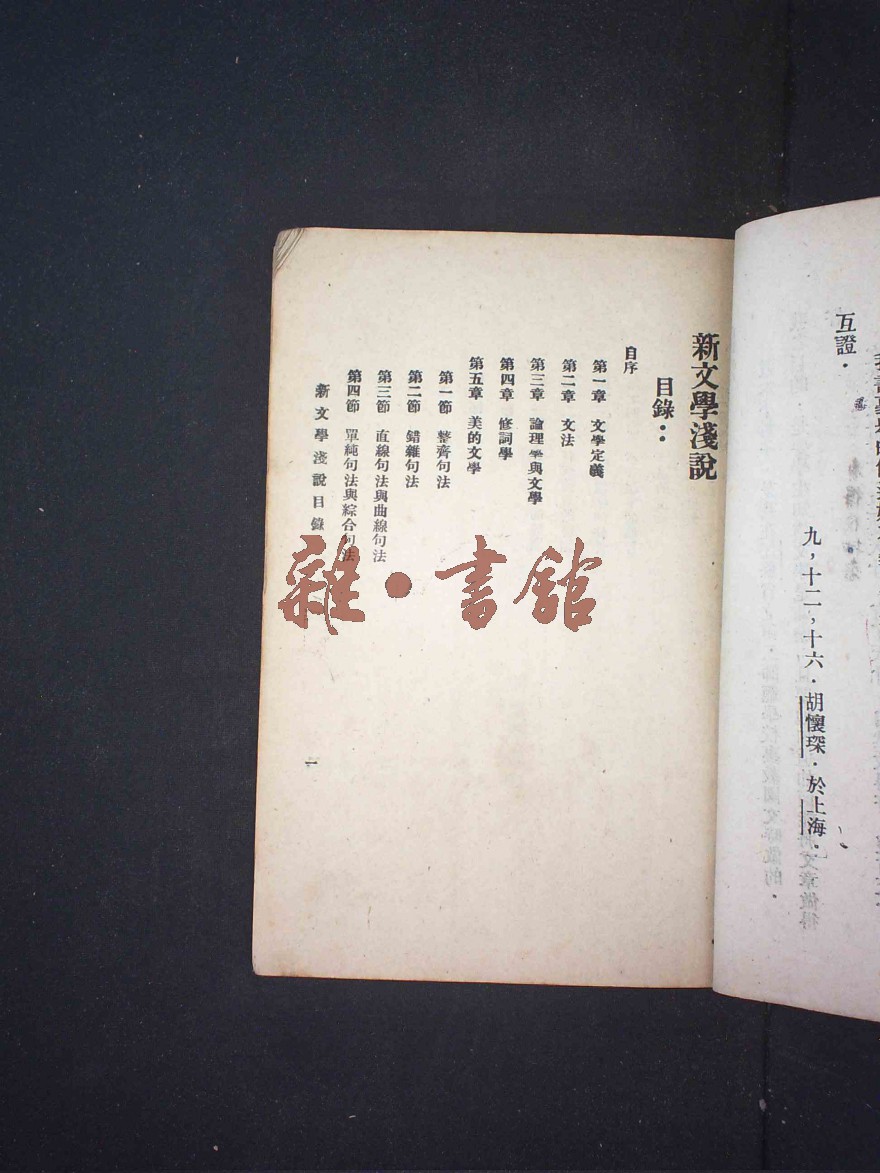 互證．
九，十二，十六．胡懷琛．於上海．
新文學淺說
目錄：
自序
第一章　文學定義
第二章　文法
第三章　論理學與文學
第四章　修詞學
第五章　美的文學
第一節　整齊句法
第二節　錯雜句法
第三節　直線句法與曲線句法
第四節　單純句法與綜合句法
新文學淺說目錄
一
雜・書館